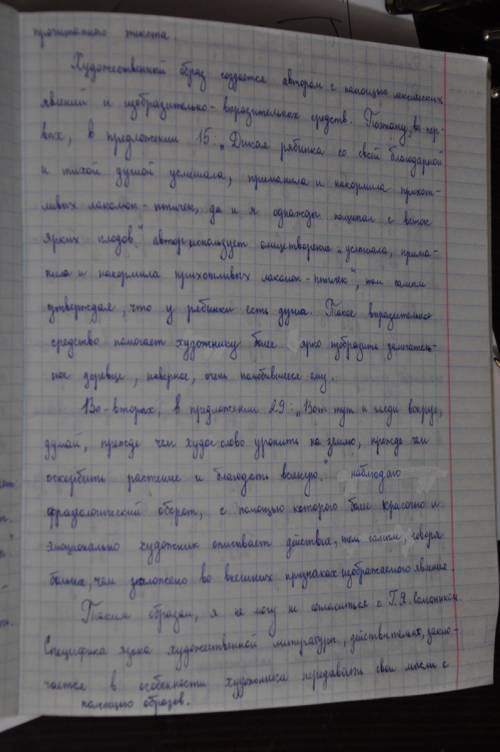 прочитанного текста
Художественный образ создаётся автором с помощью лексических
явлений и изобразительно-выразительных средств. Поэтому, во-пер-
вых, в предложении 15: „Дикая рябинка со своей благодарной
и тихой душой услышала, приманила и накормила прихот-
ливых лакомок-птичек, да и я однажды пощипал с веток
ярких плодов." автор использует олицетворение „услышала, прима-
нила и накормила прихотливых лакомок-птичек", тем самым
утверждая, что у рябинки есть душа. Такое выразительное
средство помогает художнику более ярко изобразить
деревце, наверное, очень полюбившееся ему.
Во-вторых, в предложении 29: „Вот тут и гляди вокруг,
думай, прежде чем худое слово уронить на землю, прежде чем
оскорбить растение и благодать всякую." наблюдаю
фразеологический оборот, с помощью которого более красочно и
эмоционально художник описывает действие, тем самым, говоря
больше, чем заложено во внешних признаках изображаемого явления.
Таким образом, я не могу не согласиться с Г.Я. Солгаником.
Специфика языка художественной литературы, действительно, заклю-
чается в особенности художников передавать свои мысли с
помощью образов.